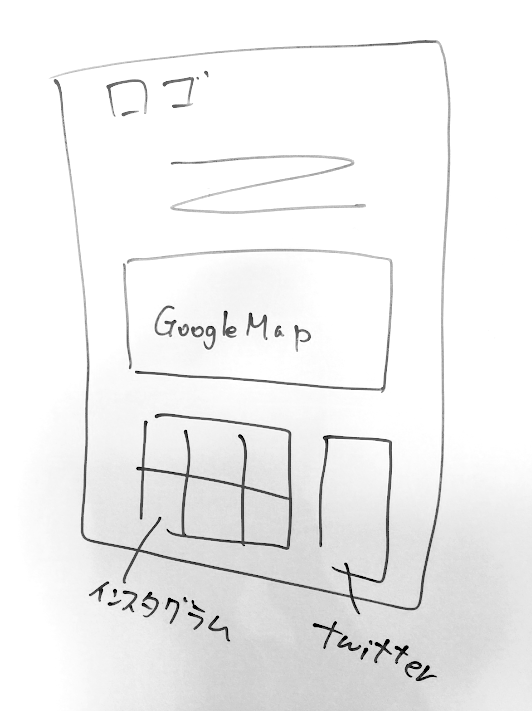 ロゴ
GoogleMap
インスタグラム
twitter